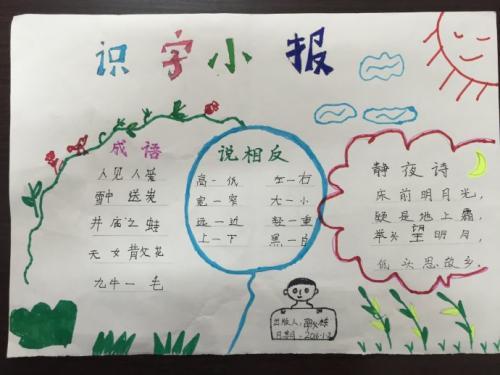 识字小报
成语
人见人爱
雪中送炭
井底之蛙
天女散花
九牛一毛
说相反
高—低 左—右
宽—窄 大—小
远—近 轻—重
上—下 黑—白
静夜诗
床前明月光，
疑是地上霜，
举头望明月，
低头思故乡。
出版人：
日期：